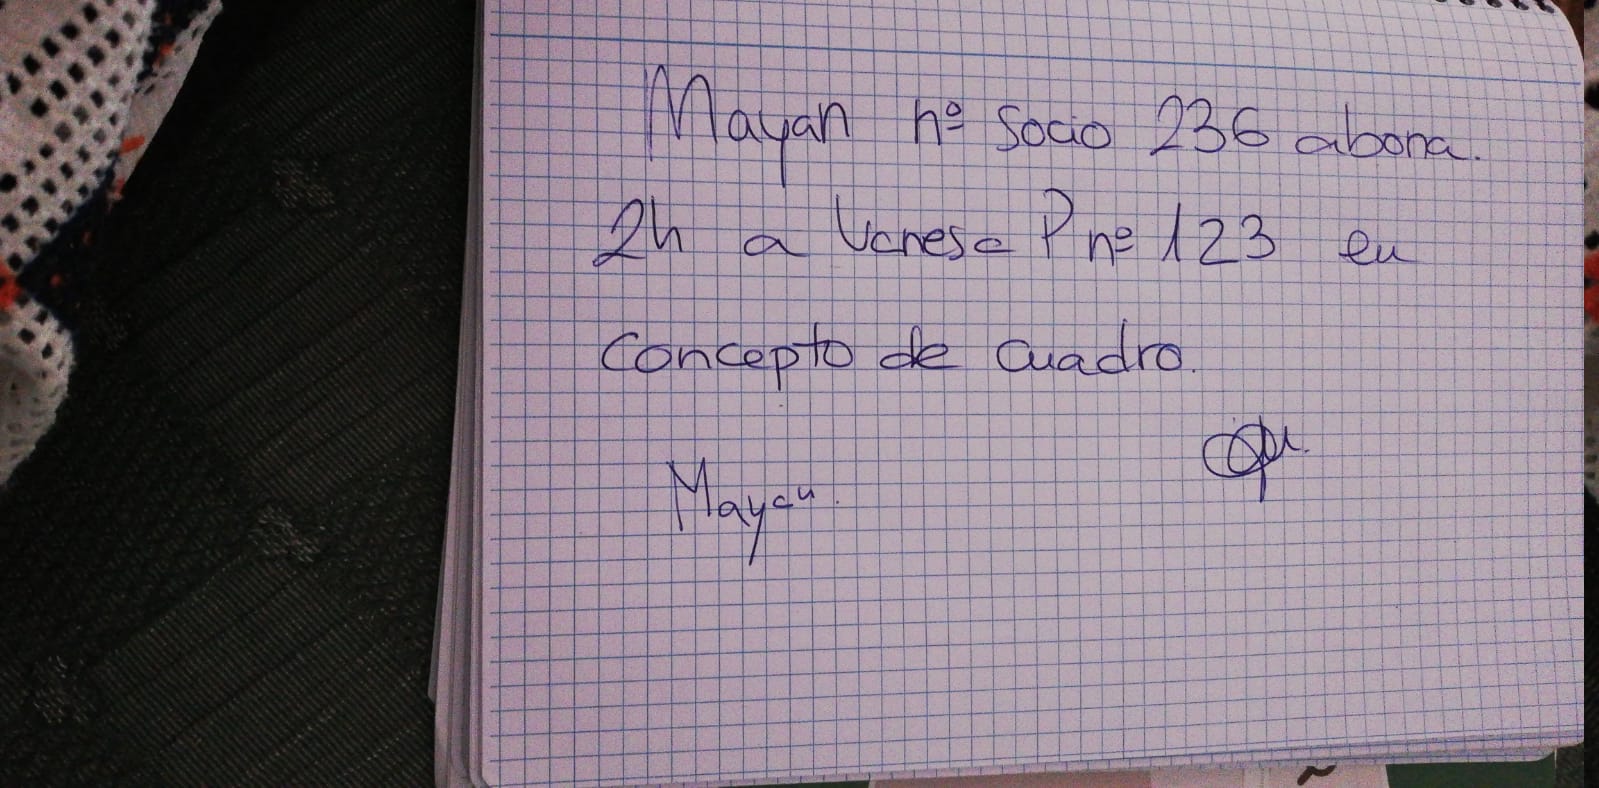 Mayan nº socio 236 abona.
2h a Vanesa P nº 123 en
concepto de cuadro.
Mayan.